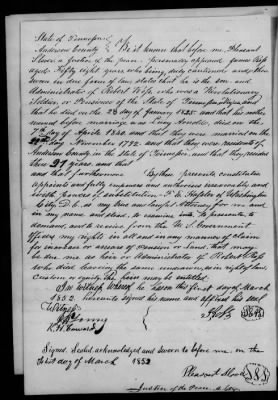 State of Tennessee
Anderson County } Be it known that before me Pleasant
a justice of the peace personally appeared James Ross
aged Fifty eight years who being duly cautioned and then
sworn in due form of law states that he is the son and
Administrator of Robert Ross, who was a Revolutionary
Soldier or Pensioner of the State of
that he died on the 23 day of January 1825 and that his mother
named before marriage as died on the
7th day of April 1840 and that they were married on the
day November 1792 and that they were residents of
Anderson County in the State of Tennessee, and that they resided
there 27 years, and that
and that furthermore By these presents constitutes
appoints and fully empowers and authorises irrevocably and
with the power of substitution of Washington
City D.C. as my true and lawful Attorney for me and
in my name and stead, to examine into, to prosecute, to
demand, and to receive from the U.S. Government
Offices, my rights in all and in any manner of claim
for increase or arrears of Pension or Land, that may
be due me as heir or Administrator of Robert Ross
who died leaving the same and in right of law
Custom or equity the heirs may be entitled
In witness Whereof he has on this first day of March
1852 hereunto signed his name and affixed his seal
Witness
Signed, Sealed acknowledged and sworn to before me, on the
first day of March 1852
Pleasant
Justice of the Peace